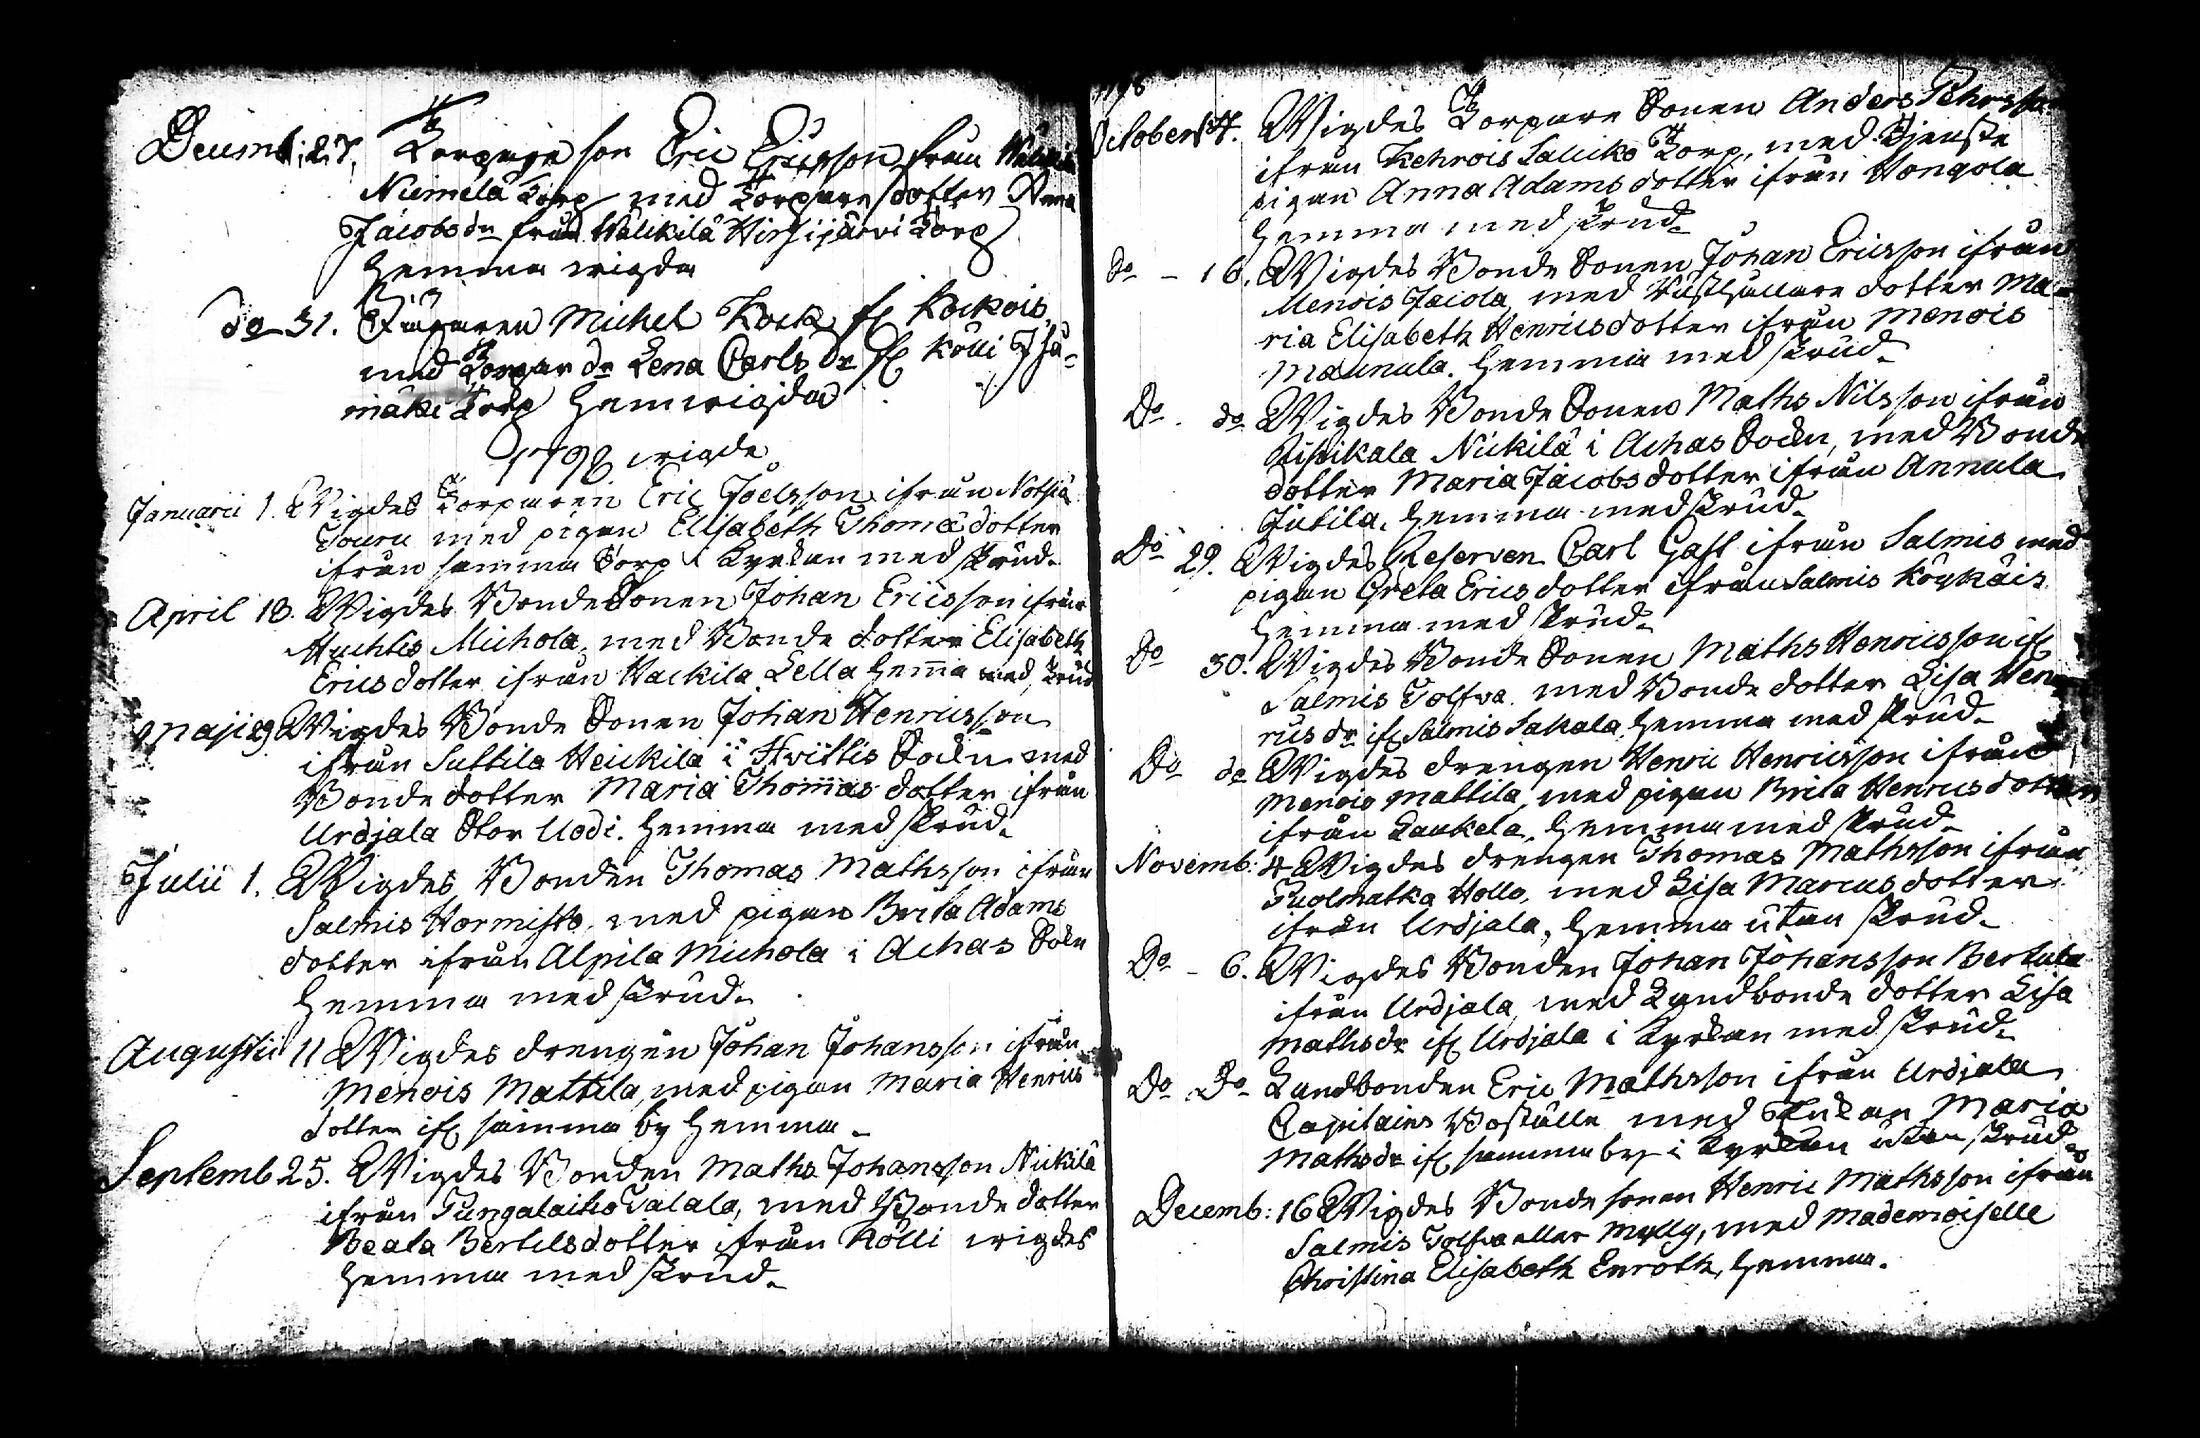 Decemb: 27. Torpare son Eric Ericsson från
Niemelä Torp med Torpare dotter Anna
Jacobsdr från Wälikilä Hirsijärvi Torp
hemma wigda
do 31. Michel Kock fr Kockois
med Torpar dr Lena Carls dr fr Kölli Isä-
mäki Torp hemwigda
1798 wigde
Januarii 1. Wigdes Torparen Eric Joelsson ifrån Notsjö
Touru med pigan Elisabeth Thomæ dotter
ifrån samma Torp i Kyrkan med skrud.
April 18. Wigdes Bonde Sonen Johan Ericsson ifrån
Huchtis Michola, med Bonde dotter Elisabeth
Ericsdotter ifrån Hackila Lella hema med skrud
Maji 29 Wigdes Bonde Sonen Johan Henricsson
ifrån Suttila Heickilä i Hvittis Sockn med
Bonde dotter Maria Thomas dotter ifrån
Urdjala Stor Uodi. hemma med skrud.
Julii 1. Wigdes Bonden Thomas Mathsson ifrån
Salmis Hormisto, med pigan Brita Adams
dotter ifrån Alpila Michola i Achas Sokn
hemma med skrud.
Augustii 11 Wigdes drengen Johan Johansson ifrån
Menois Mattila, med pigan Maria Henrics
dotter ifr samma by hemma.
Septemb 25. Wigdes Bonden Maths Johansson Nickilä
ifrån Tungalaitio Talala, med Bonde dotter
Beata Bertilsdotter ifrån Kölli wigdes
hemma med skrud.
1798
October 4. Wigdes Torpare Sonen Anders Pehrsson
ifrån Kehrois Saliko Torp, med Tjenste
pigan Anna Adamsdotter ifrån Hongola
hemma med skrud.
do - 16. Wigdes Bonde Sonen Johan Ericsson ifrån
Menois Jaiola, med Rusthållare dotter Ma-
ria Elisabeth Henricsdotter ifrån Menois
Maunula. hemma med skrud.
Do. do Wigdes Bonde Sonen Maths Nilsson ifrån
Nickilä i Achas Sockn, med Bonde
dotter Maria Jacobsdotter ifrån Annula
Jutila. hemma med skrud.
Do 29. Wigdes Reserven Carl Gast ifrån Salmis med
pigan Greta Ericsdotter ifrån Salmis Köykäis
hemma med skrud.
Do 30. Wigdes Bonde Sonen Maths Henricsson ifr
Salmis Tolfva med Bonde dotter Lisa Hen
rics dr ifr Salmis Sakala hemma med skrud.
Do do Wigdes drengen Henric Henricsson ifrån
Menois Mattila, med pigan Brita Henricsdotter
ifrån Laukela. hemma med skrud.
Novemb: 4 Wigdes drengen Thomas Mathsson ifrån
Puolmatka Hollo, med Lisa Marcusdotter
ifrån Urdjala, hemma utan skrud.
Do - 6. Wigdes Bonden Johan Johansson Bertula
ifrån Urdjala, med Landbonde dotter Lisa
Mathsdr ifr Urdjala i Kyrkan med skrud.
Do Do Landbonden Eric Mathsson ifrån Urdjala
Capitains Boställe med Enkan Maria
Mathsdr ifr samma by i Kyrkan utan skrud
Decemb: 16 Wigdes Bonde sonen Henric Mathsson ifrån
Salmis Tolfva eller Mylly, med Mademoiselle
Christina Elisabeth Enroth, hemma.